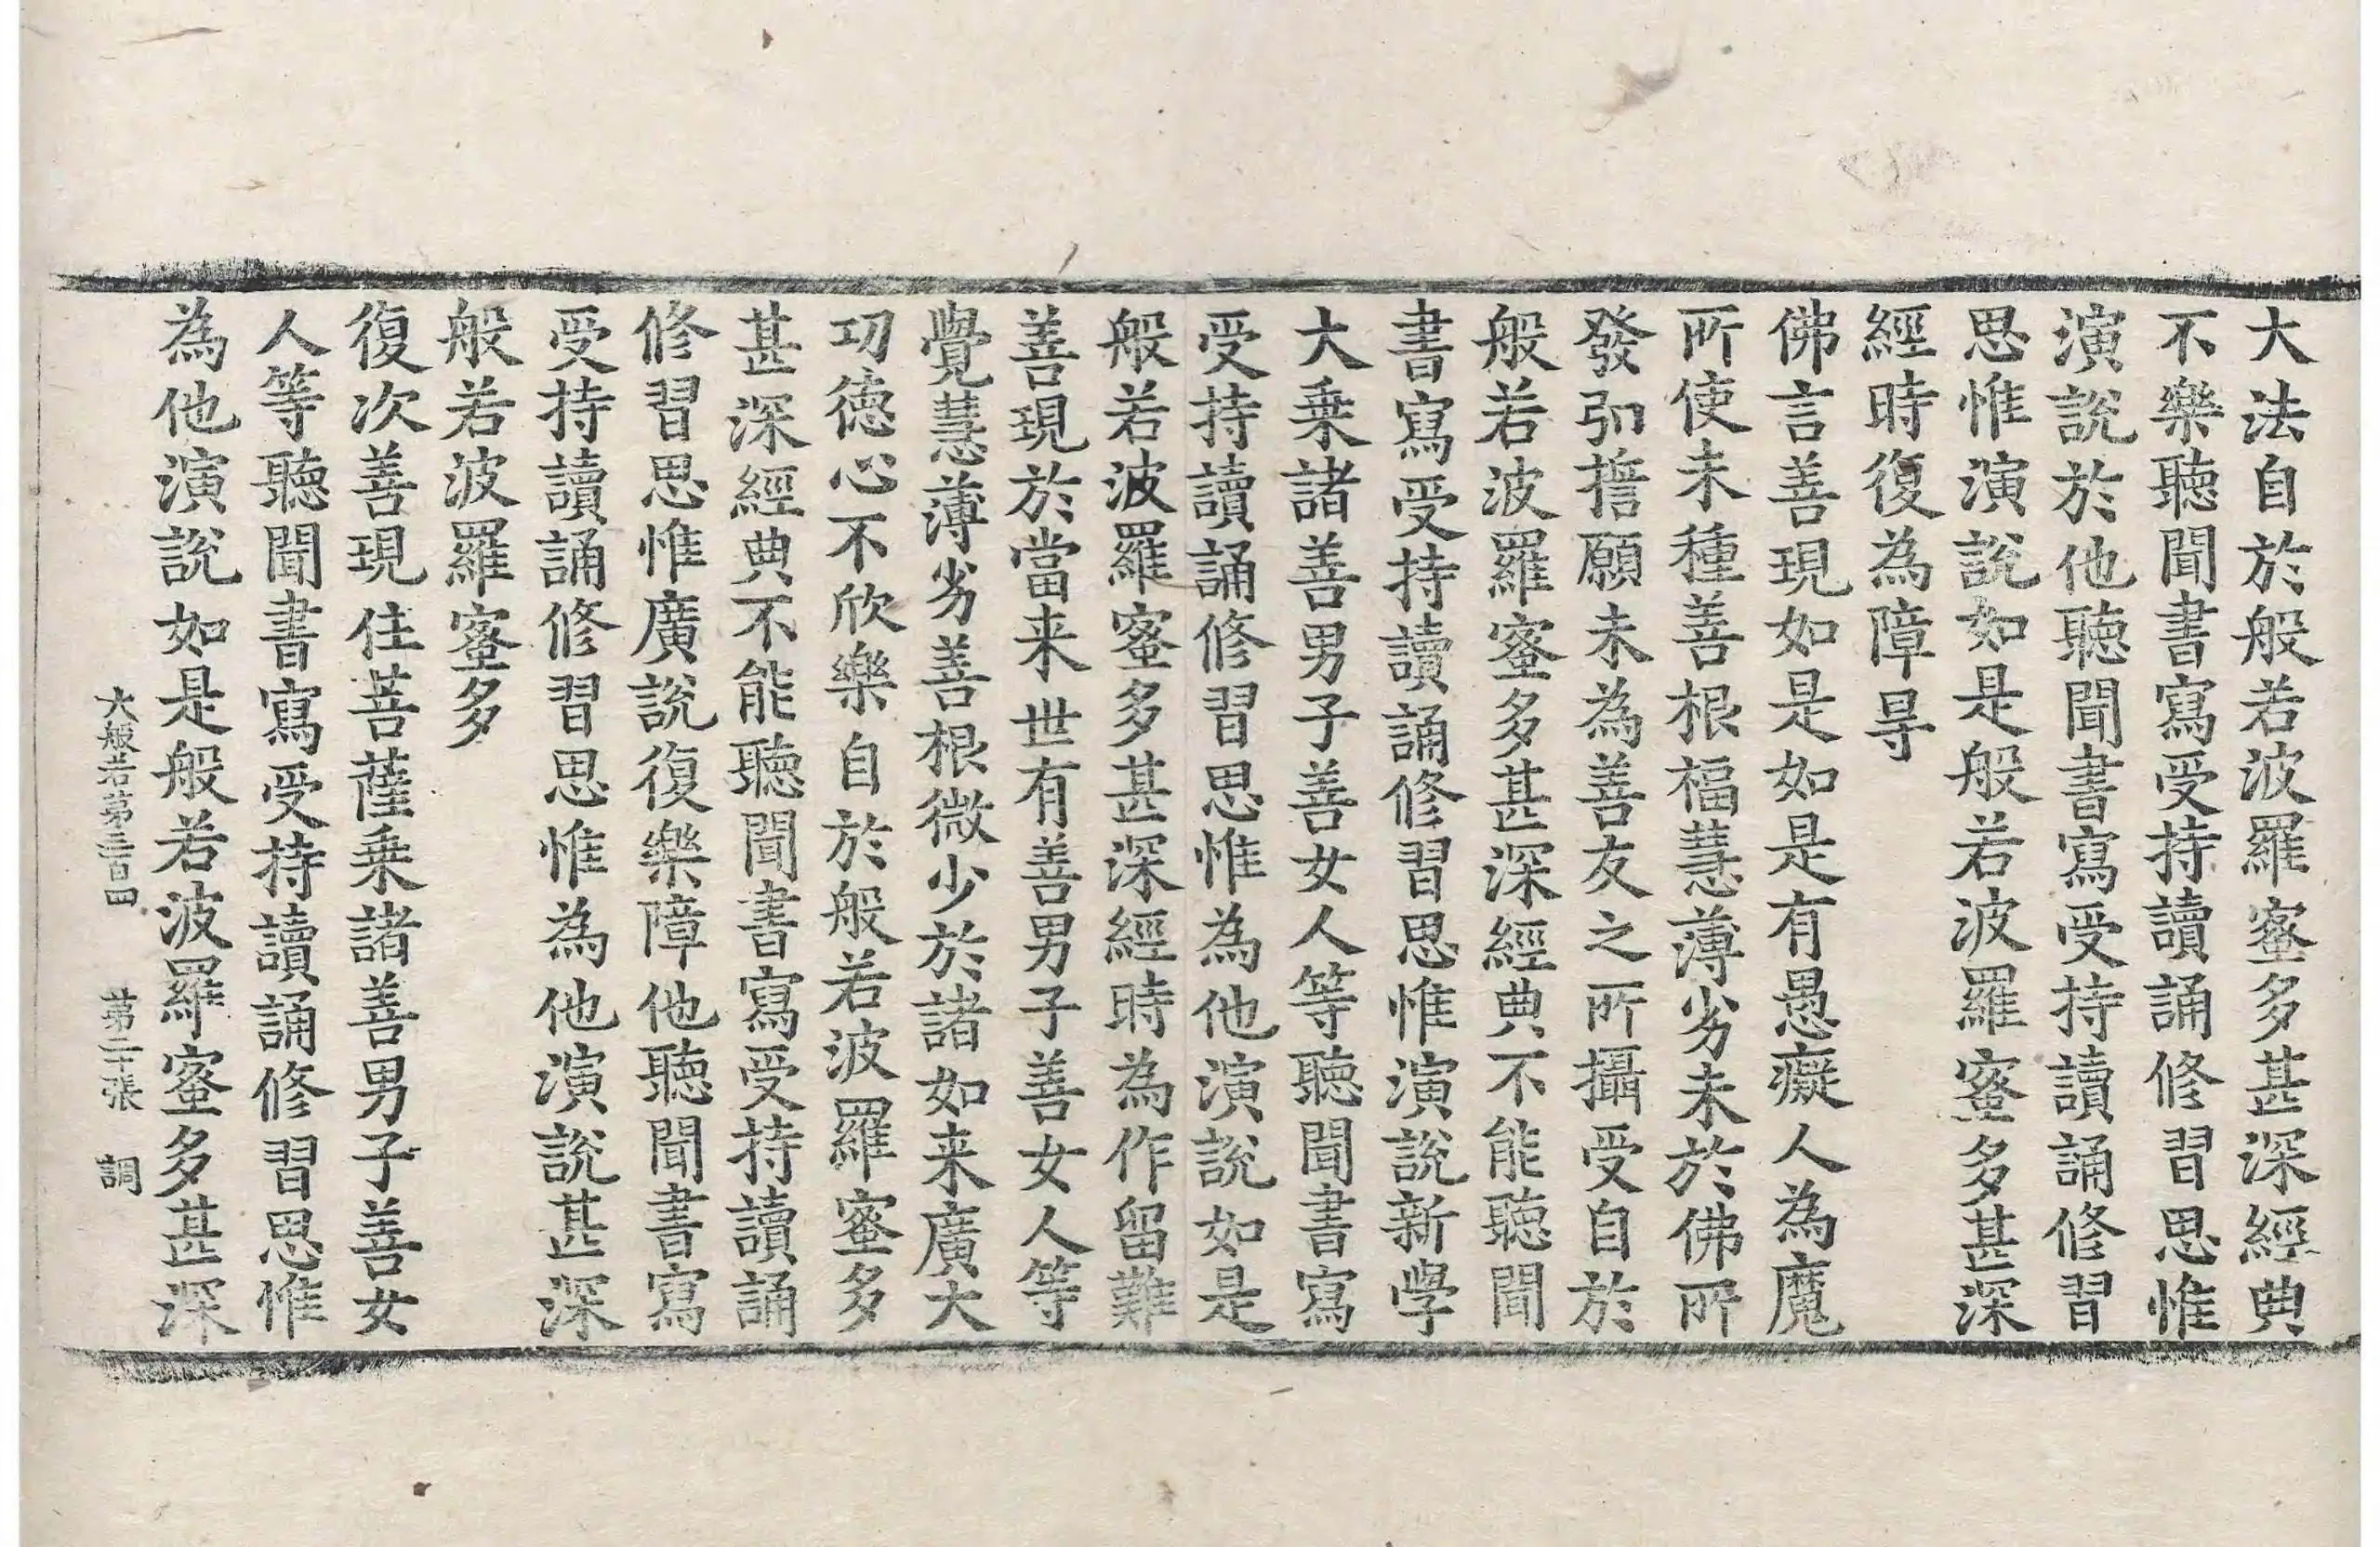 大法自於般若波羅蜜多甚深經典
不樂聽聞書寫受持讀誦修習思惟
演說於他聽聞書寫受持讀誦修習
思惟演說如是般若波羅蜜多甚深
經時復為障㝵
佛言善現如是如是有愚癡人為魔
所使未種善根福慧薄劣未於佛所
發弘誓願未為善友之所攝受自於
般若波羅蜜多甚深經典不能聽聞
書寫受持讀誦修習思惟演說新學
大乗諸善男子善女人等聽聞書寫
受持讀誦修習思惟為他演說如是
般若波羅蜜多甚深經時為作留難
善現於當来世有善男子善女人等
覺慧薄劣善根微少於諸如来廣大
功德心不欣樂自於般若波羅蜜多
甚深經典不能聽聞書寫受持讀誦
修習思惟廣說復樂障他聽聞書寫
受持讀誦修習思惟為他演說甚深
般若波羅蜜多
復次善現住菩薩乗諸善男子善女
人等聽聞書寫受持讀誦修習思惟
為他演說如是般若波羅蜜多甚深
大般若第三百四 第二十張 調